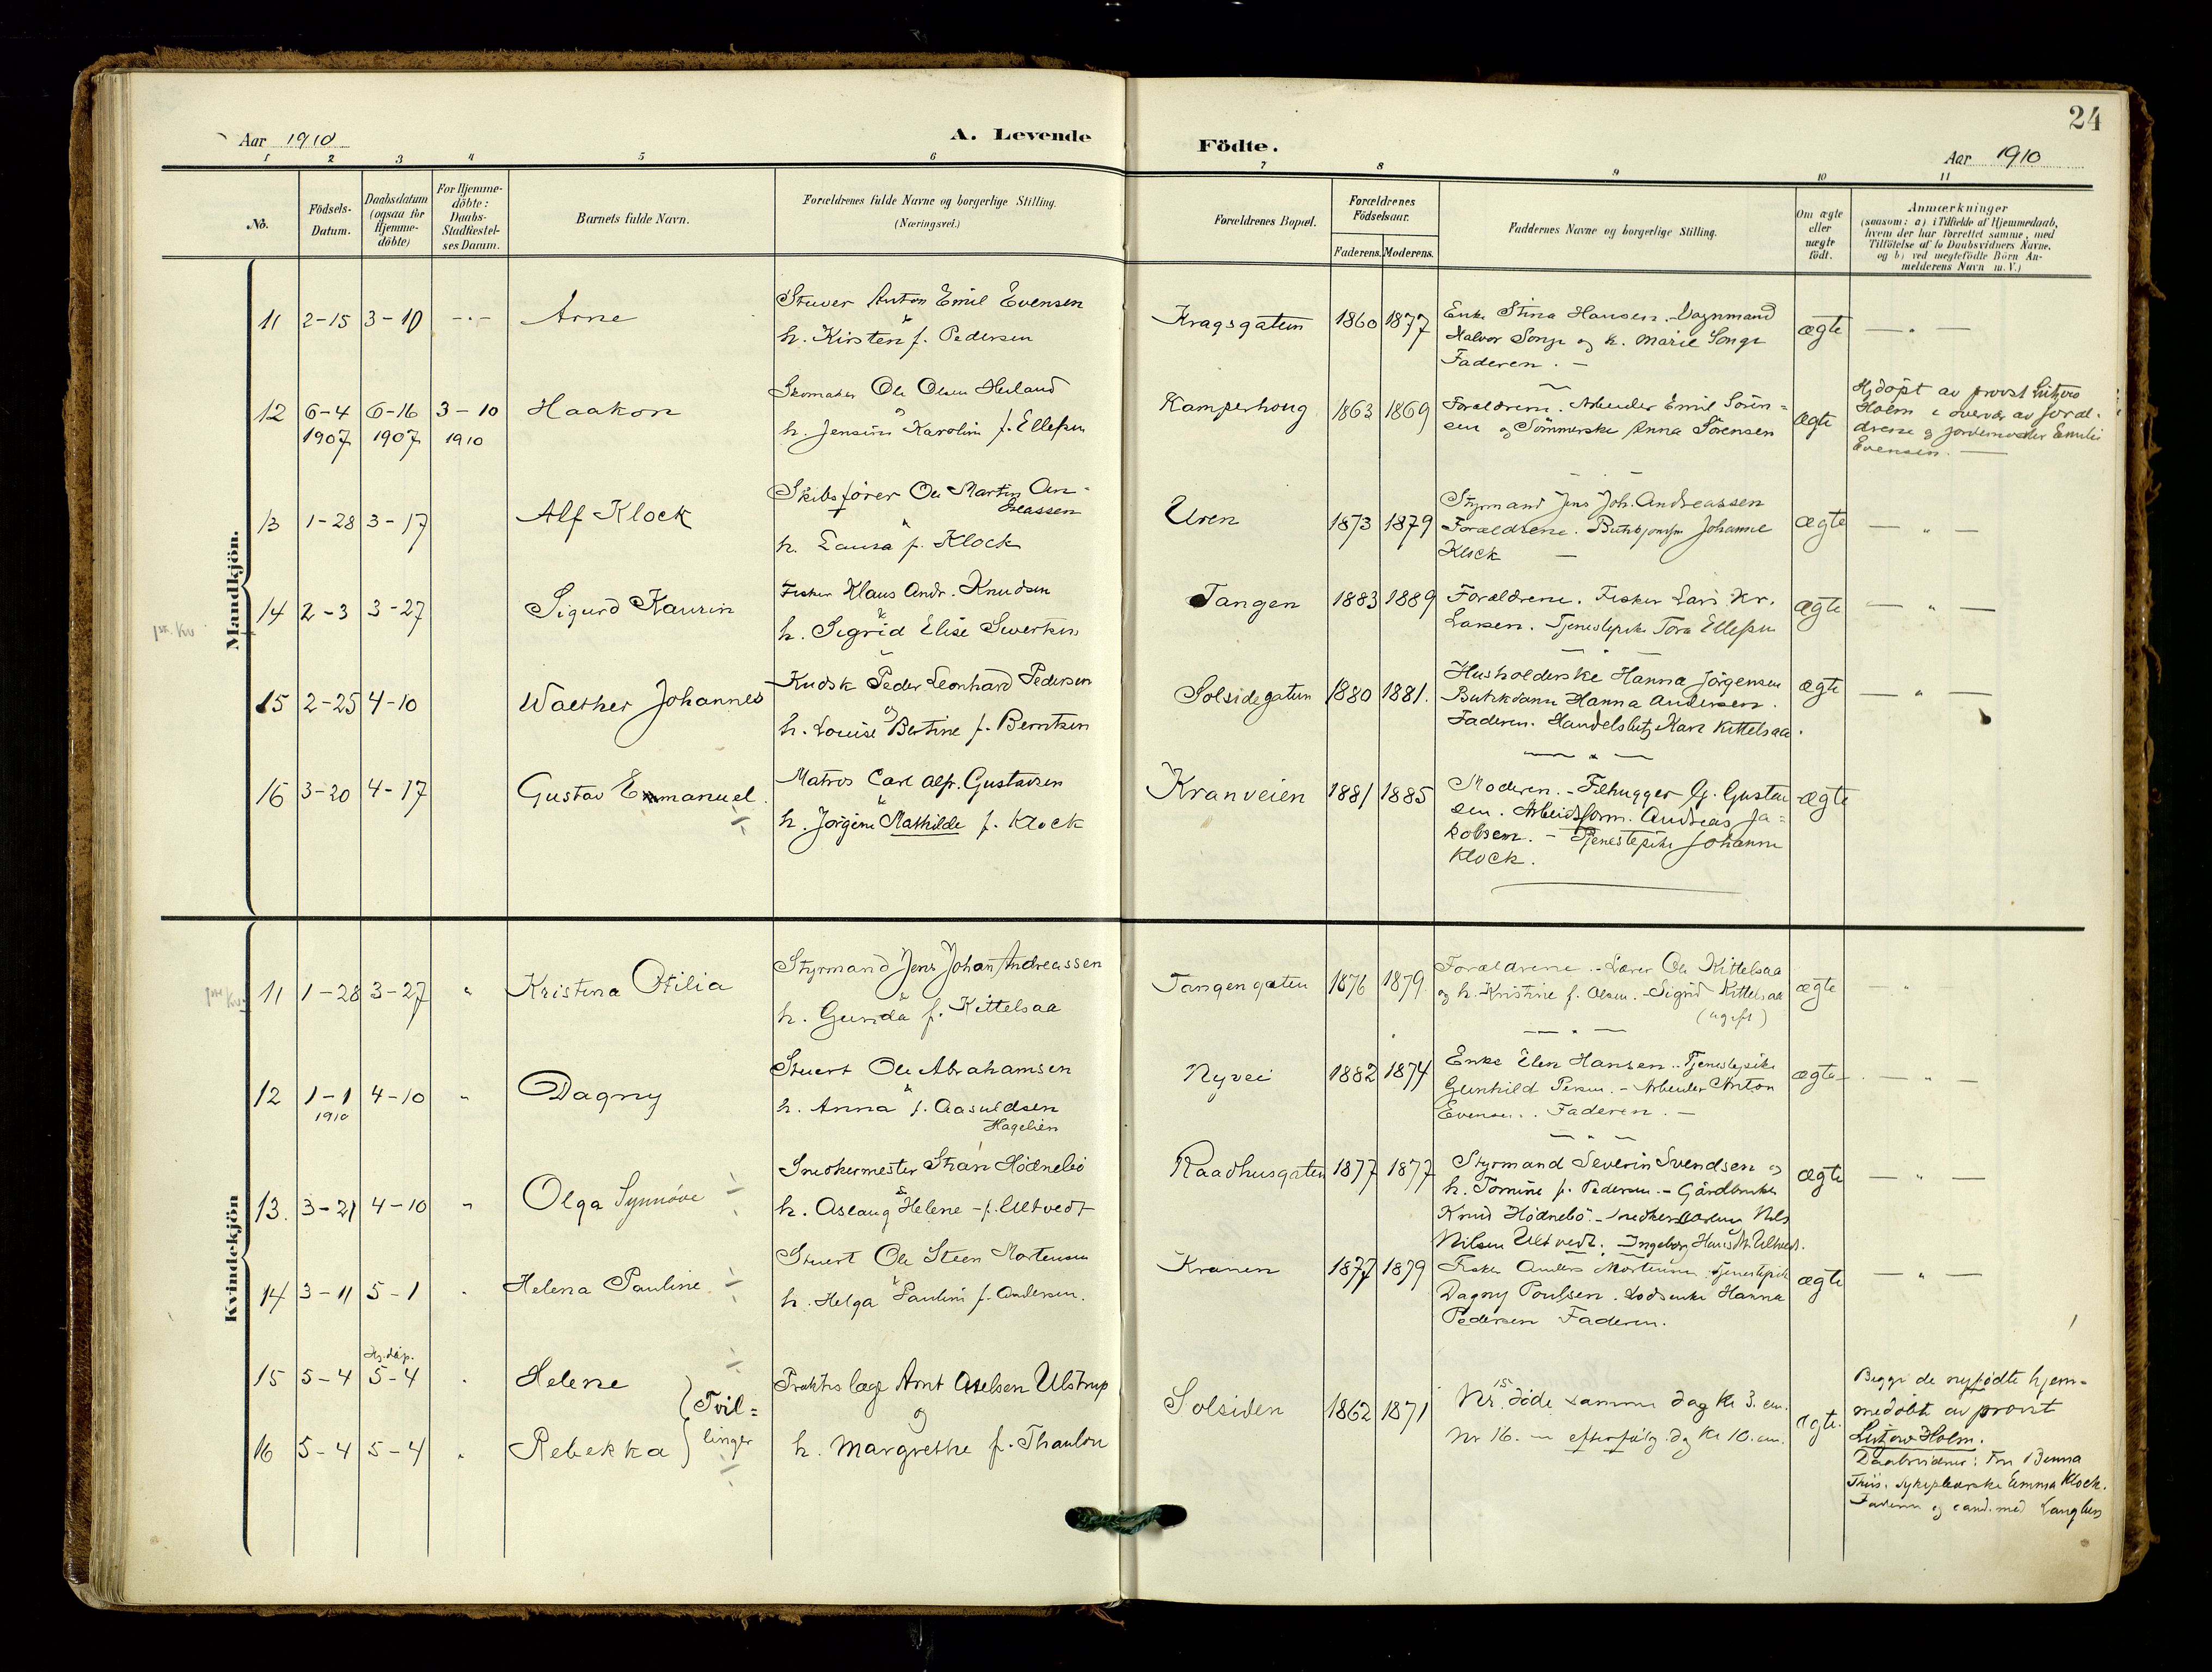 24
Aar 1910
A. Levende
Födte.
Aar 1910
1 2 3 4 5 6 7 8 9 10 11
No.
Födsels-
Datum.
Daabsdatum
(ogsaa for
Hjemme-
döbte)
For Hjemme-
döbte:
Daabs-
Stadfæstel-
ses Datum.
Barnets fulde Navn.
Forældrenes fulde Navne og borgerlige Stilling.
(Næringsvei.)
Forældrenes Bopæl.
Forældrenes
Födselsaar.
Faderens. Moderens.
Faddernes Navne og borgerlige Stilling.
Om ægte
eller
uægte
födt.
Anmærkninger
(saasom: a) i Tilfælde af Hjemmedaab,
hvem der har forrettet samme, med
Tilföielse af to Daabsvidners Navne.
og b) ved uægtefödte Börn An-
melderens Navn m. V.)
Mandkjön.
11 2-15 3-10 -·- Arne
Stuver Anton Emil Evensen
h. Kirsten f. Pedersen
Kragsgaten 1860 1877
Enke Stina Hansen.
Halvor Songe og h. Marie Songe
Faderen. -
ægte
12 6-4 6-16 3-10 Haakon
1907 1907 1910
Skomaker Ole Olsen Heiland
og
h. Jensine Karoline f. Ellefsen
Kamperhoug 1863 1869
Forældrene. Arbeider Emil Sören-
sen og Sömmerske Anna Sörensen
ægte
Hjdöpt av provst Lützow
Holm i overvær av foræl-
drene og jordemoder Emilie
Evensen. -
13 1-28 3-17 Alf Klock
Skibsförer Ole Martin An-
dreassen
h. Laura f. Klock
Uren 1873 1879
Styrmand Jens Joh. Andreassen
Forældrene. Johanne
Klock -
ægte
1ste Kv
14 2-3 3-27 Sigurd Kaurin
Fisker Klaus Andr. Knudsen
h. Sigrid Elise Sivertsen
Tangen 1883 1889
Forældrene. Fisker Lars Kr.
Larsen. Tjenestepike Tora Ellefsen
ægte
15 2-25 4-10 Walther Johannes
Kudsk Peder Leonhard Pedersen
og
h. Louise Bertine f. Berntsen
Solsidegaten 1880 1881.
Husholderske Hanna Jörgensen
Hanna Andersen.
Faderen. Handelsbetj. Karl Kittelsaa.
ægte
16 3-20 4-17 Gustav Emmanuel.
Matros Carl Alfr. Gustavsen
h. Jörgine Mathilde f. Klock
Kranveien 1881 1885
Moderen. - Filhugger G. Gustav
sen. Arbeidsform. Andreas Ja=
kobsen. - Tjenestepike Johanne
Klock.
ægte
Kvindekjön
1ste Kv.
11 1-28 3-27 " Kristina Otilia
Styrmand Jens Johan Andreassen
h. Gunda f. Kittelsaa
Tangengaten 1876 1879
Forældrene. - Lærer Ole Kittelsaa
og h. Kristine f. Olsen. - Sigrid Kittelsaa
(ugift)
ægte
12 1-1 4-10 " Dagny
1910
Stuert Ole Abrahamsen
h. Anna f. Aasuldsen
Hagelien
Nyvei 1882 1874
Enke Elen Hansen. Tjenestepike
Gunhild - Arbeider Anton
Evensen. Faderen. -
ægte
13. 3-21 4-10 " Olga Synnöve
Snedkermester Hödnebö
h. Aslaug Helene - f. Ultvedt
Raadhusgaten 1877 1877
Styrmand Severin Svendsen og
h. Tomine f. Pedersen. - Gårdbruker
Knud Hödnebö. - Nils
Nilsen Ultvedt. Ingeborg Ultvedt.
ægte
14 3-11 5-1 " Helena Pauline
Stuert Ole Steen Mortensen
h. Helga Pauline f. Andersen.
Kranen 1877 1879
Fisker Anders Mortensen. Tjenestepike
Dagny Poulsen. Lodsenke Hanna
Pedersen Faderen.
ægte
Hj.döp.
15 5-4 5-4 " Helene
Tvil=
linger
16 5-4 5-4 " Rebekka
Praktis læge Arnt Axelsen Ulstrup
og
h. Margrethe f. Thaulow
Solsiden 1862 1871
Nr. 15 döde samme dag Kl 3. em.
Nr 16. - efterfölg. dg Kl 10. em.
ægte.
Begge de nyfödte hjem-
medöbt av provst
Lützow Holm.
Daabsvidner: Fru Benna
Friis. Sykepleierske Emma Klock.
Faderen og cand. med Langberg